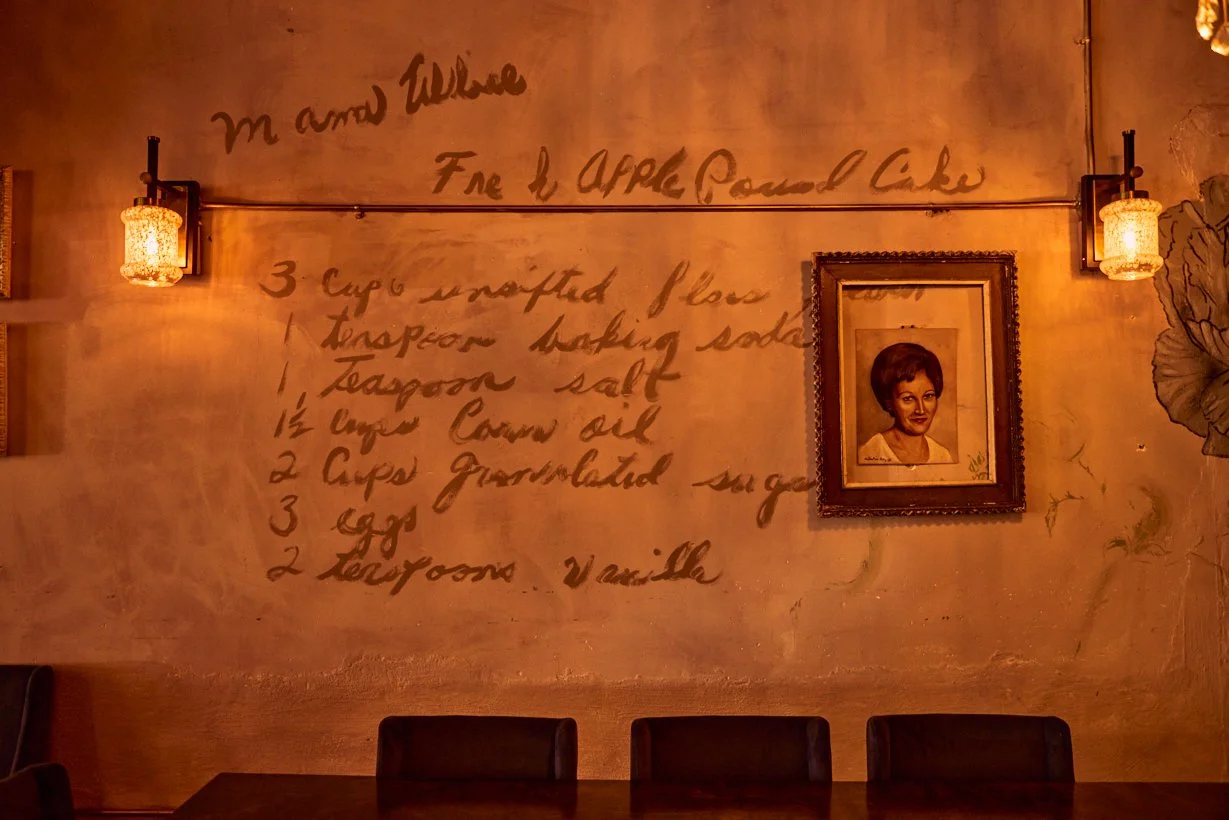 Mama
Freh Apple Pound Cake
3 Cups unsifted flour
1 teaspoon baking soda
1 Teaspoon salt
1½ cups Corn oil
2 Cups granulated suga
3 eggs
2 teaspoons vanilla